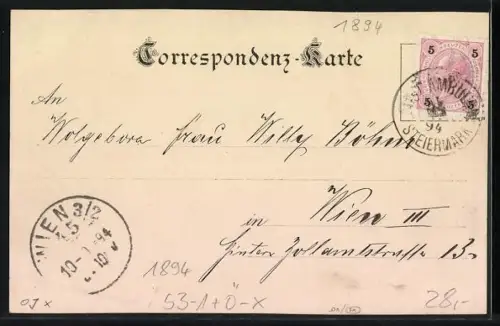 1894
5 5
Correspondenz-Karte
5 5
94
STEIERMARK
An
Wolgebora Frau Willy Böhm
in Wien III
Hintere Zollamtstrasse 13.
WIEN 3/2
1894
53-1+Ö-X
28,-